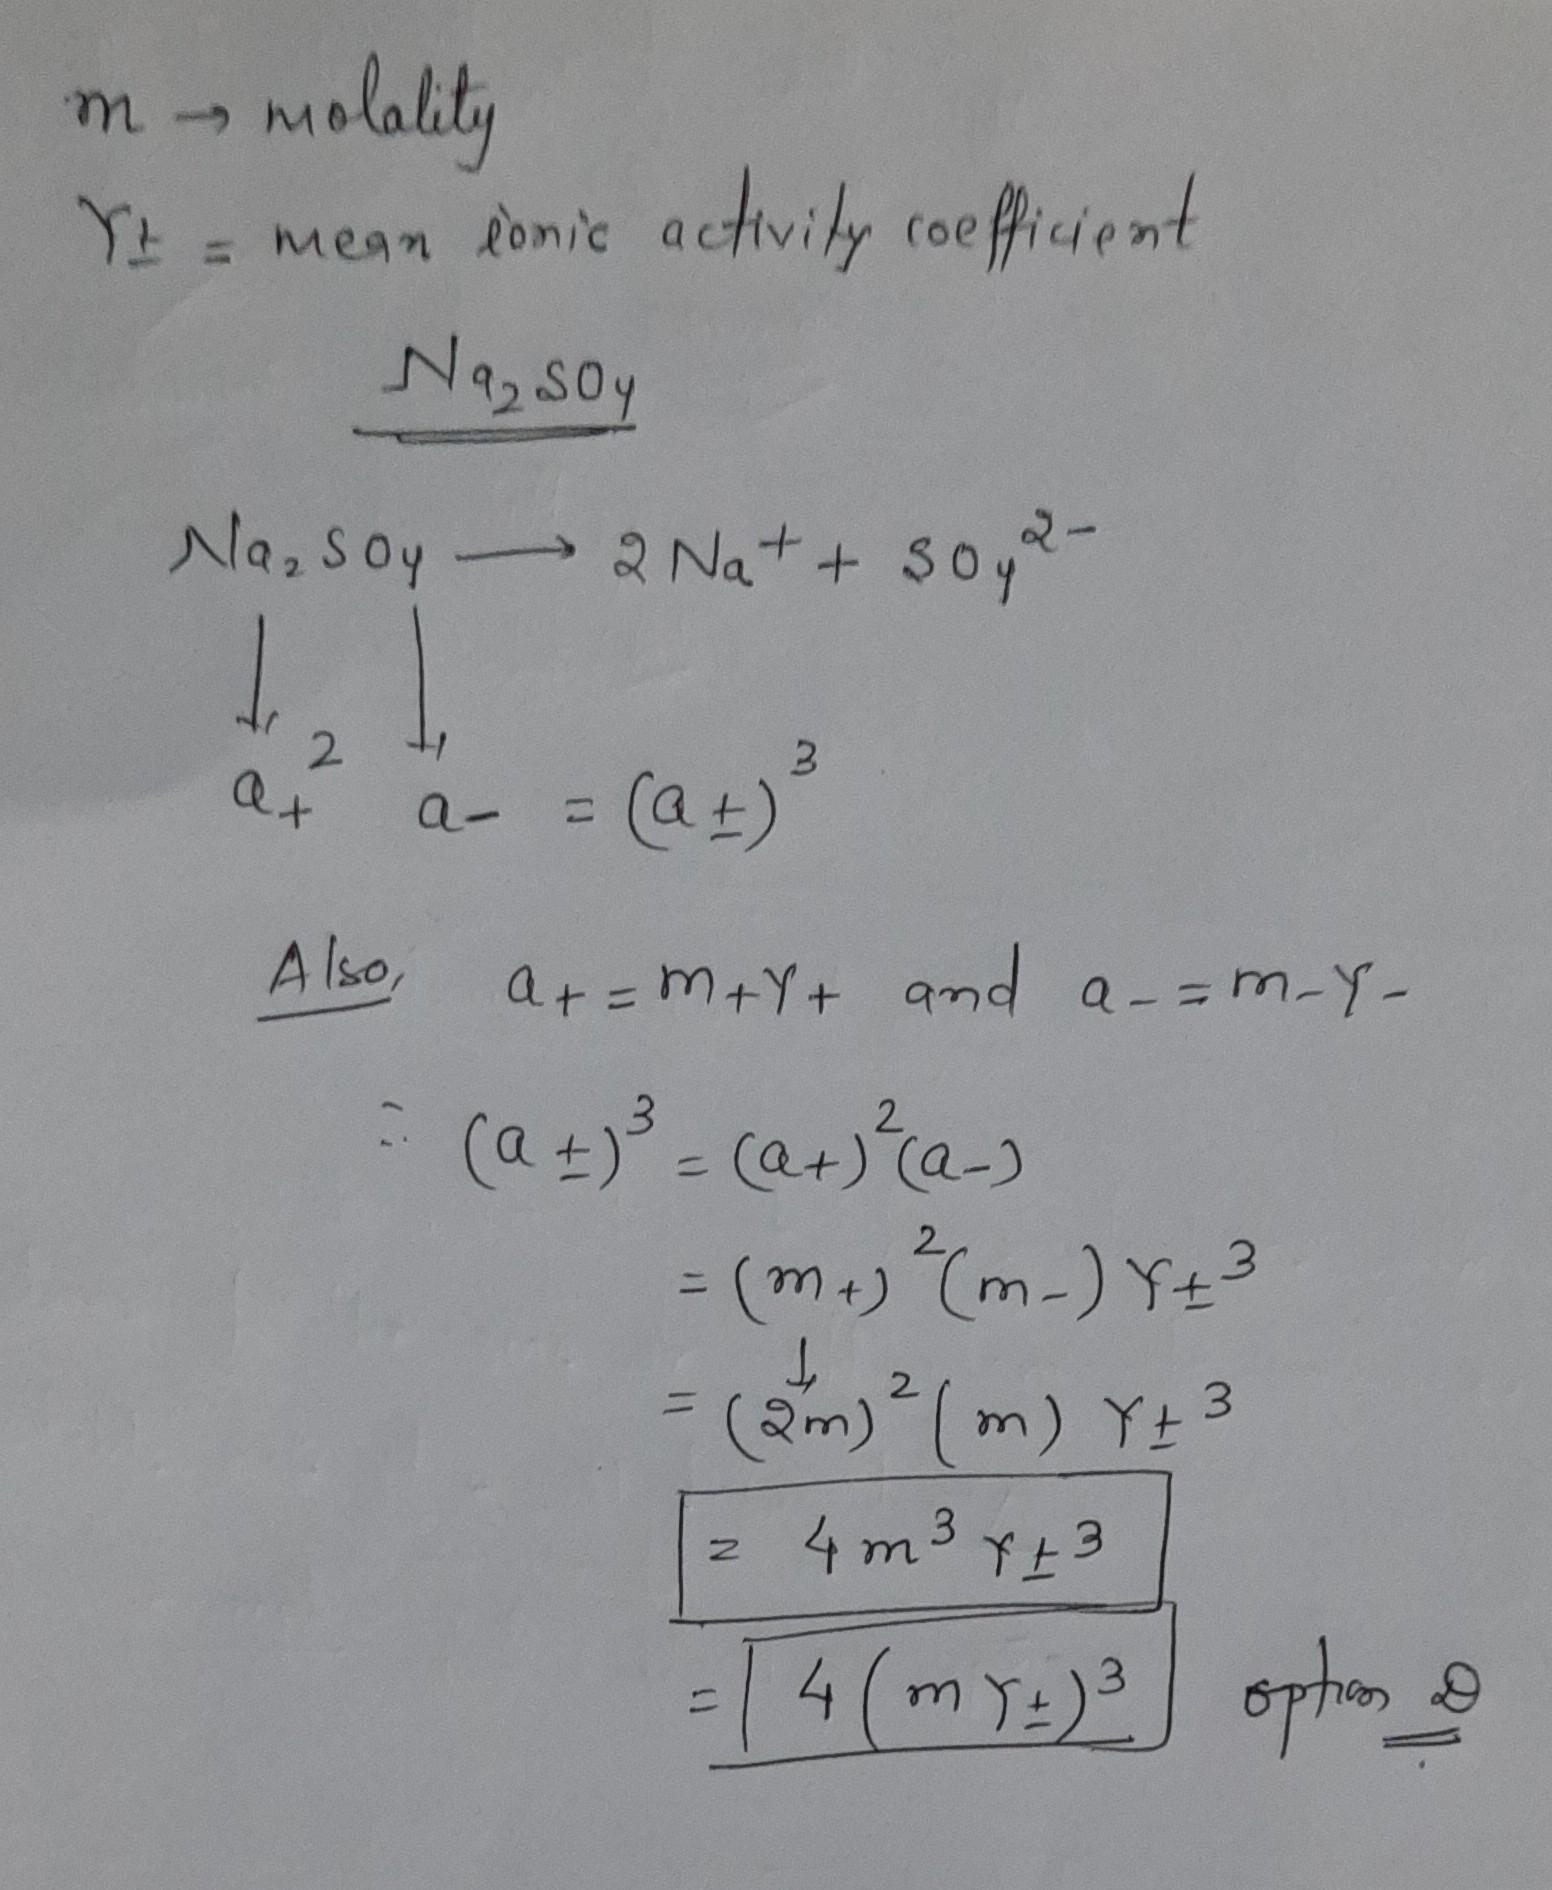 m → molality
γ± = mean ionic activity coefficient
Na₂SO₄
Na₂SO₄ ⟶ 2Na⁺ + SO₄²⁻
↓ ↓
a₊² a₋ = (a±)³
Also, a₊ = m₊γ₊ and a₋ = m₋γ₋
∴ (a±)³ = (a₊)²(a₋)
= (m₊)²(m₋) γ±³
↓
= (2m)²(m) γ±³
= 4m³γ±³
= 4(mγ±)³ option D